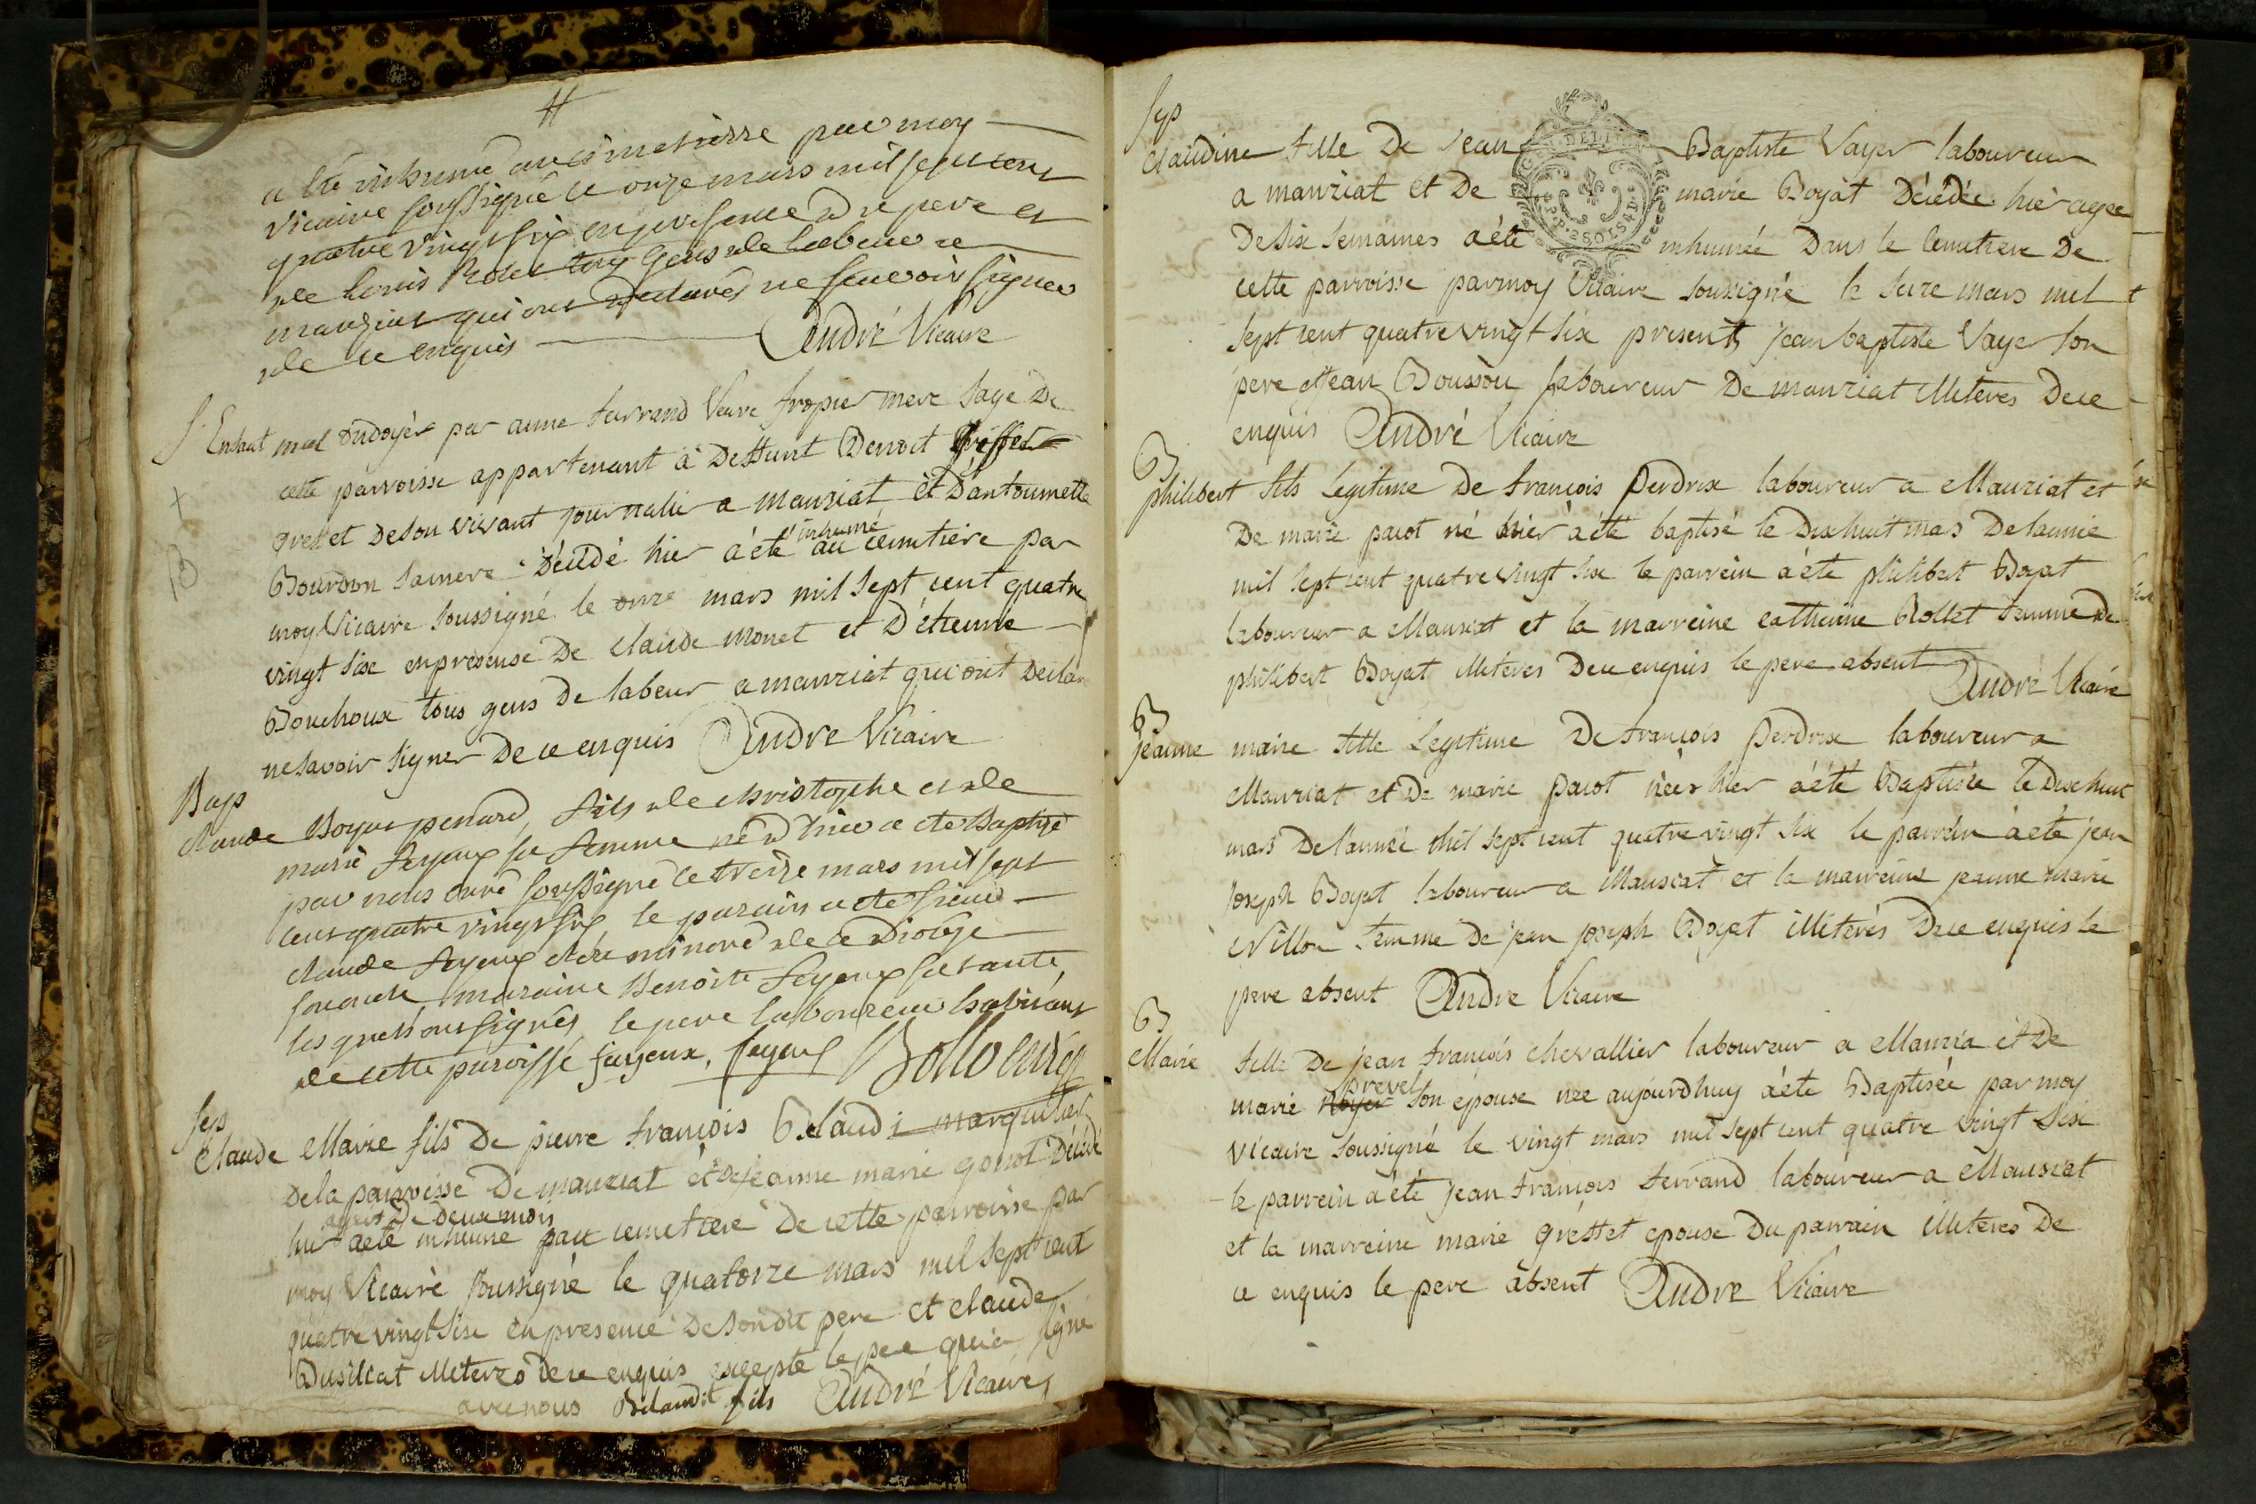 a été inhumé au cimetierre par moy
vicaire soussigné le onze mars mil sept cent
quatre vingt six en presence du pere et
de Louis Rolet tous gens de labeur de
manziat qui ont declarés ne scavoir signer
de ce enquis
André Vicaire
S. Enfant mal ondoyèr par anne ferrand Veuve tropier mere sage De
cette parroisse appartenant à Deffunt Benoit
greffet De son vivant journalier a manziat èt Dantoinette
Bourdon sa mere Décédé hier a été inhumé au cemetiere par
moy Vicaire soussigné le onze mars mil sept cent quatre
vingt six en presense De claude monet et D'étienne
Bouchoux tous gens de labeur a manziat qui ont Declaré
ne savoir signer De ce enquis André Vicaire
Bap
claude Boyat penard, fils de christophe et de
marie feyeux sa femme né d'hier a ete Baptisé
par nous curé soussigné le treize mars mil sept
cent quatre vingt six le parain a ete sieur
claude feyeux clerc minoré de ce diocese
son oncle maraine Benoite feyeux sa tante,
les quels ont signés, le pere laboureur habitant
de cette paroisse feyeux. feyeux Bollo curé
Sep
Claude Marie fils De pierre françois Belaudi marguilier
De la parroisse De manziat èt De jeanne marie gonot Décédé
hier agée de deux mois a ete inhumé au cemetiere De cette parroisse par
moy Vicaire soussigné le quatorze mars mil sept cent
quatre vingt six en presence De son dit pere et claude
Dusillat illeteres De ce enquis excepte le pere qui a signé
avec nous Belaudi fils André Vicaire
Sep
Claudine fille De Jean Baptiste Vayer laboureur
a manziat et De marie Boyat Décédée hier agee
De six semaines a été inhumée Dans le Cemetiere De
cette parroisse par moy Vicaire soussigné le seize mars mil
sept cent quatre vingt six presents jean baptiste Vayer son
pere et Jean Bousson laboureur De manziat illeteres De ce
enquis André Vicaire
B
philibert fils Legitime De françois perdrix laboureur a Manziat et
De marie pacot né hier a été baptisé le Dix huit mars De l'année
mil sept cent quatre vingt six le parrein a été philibert Boyat
laboureur a Manziat et la marreine catherine Rollet femme De
philibert Boyat illeteres De ce enquis le pere absent André Vicaire
B
jeanne marie fille Legitime De françois perdrix laboureur a
Manziat et De marie pacot née hier a été Baptisée le Dix huit
mars De l'année mil sept cent quatre vingt six le parrein a été jean
joseph Boyat laboureur a Manziat et la marreine jeanne marie
Nillon femme De jean joseph Boyat illeterés De ce enquis le
pere absent André Vicaire
B
Marie fille De jean françois chevallier laboureur a Manzia et De
marie prevel son épouse née aujourdhuy a été Baptisée par moy
Vicaire soussigné le vingt mars mil sept cent quatre vingt six
le parrein a été jean françois ferrand laboureur a Manziat
et la marreine marie gréffet epouse Du parrain illeteres De
ce enquis le pere absent André Vicaire